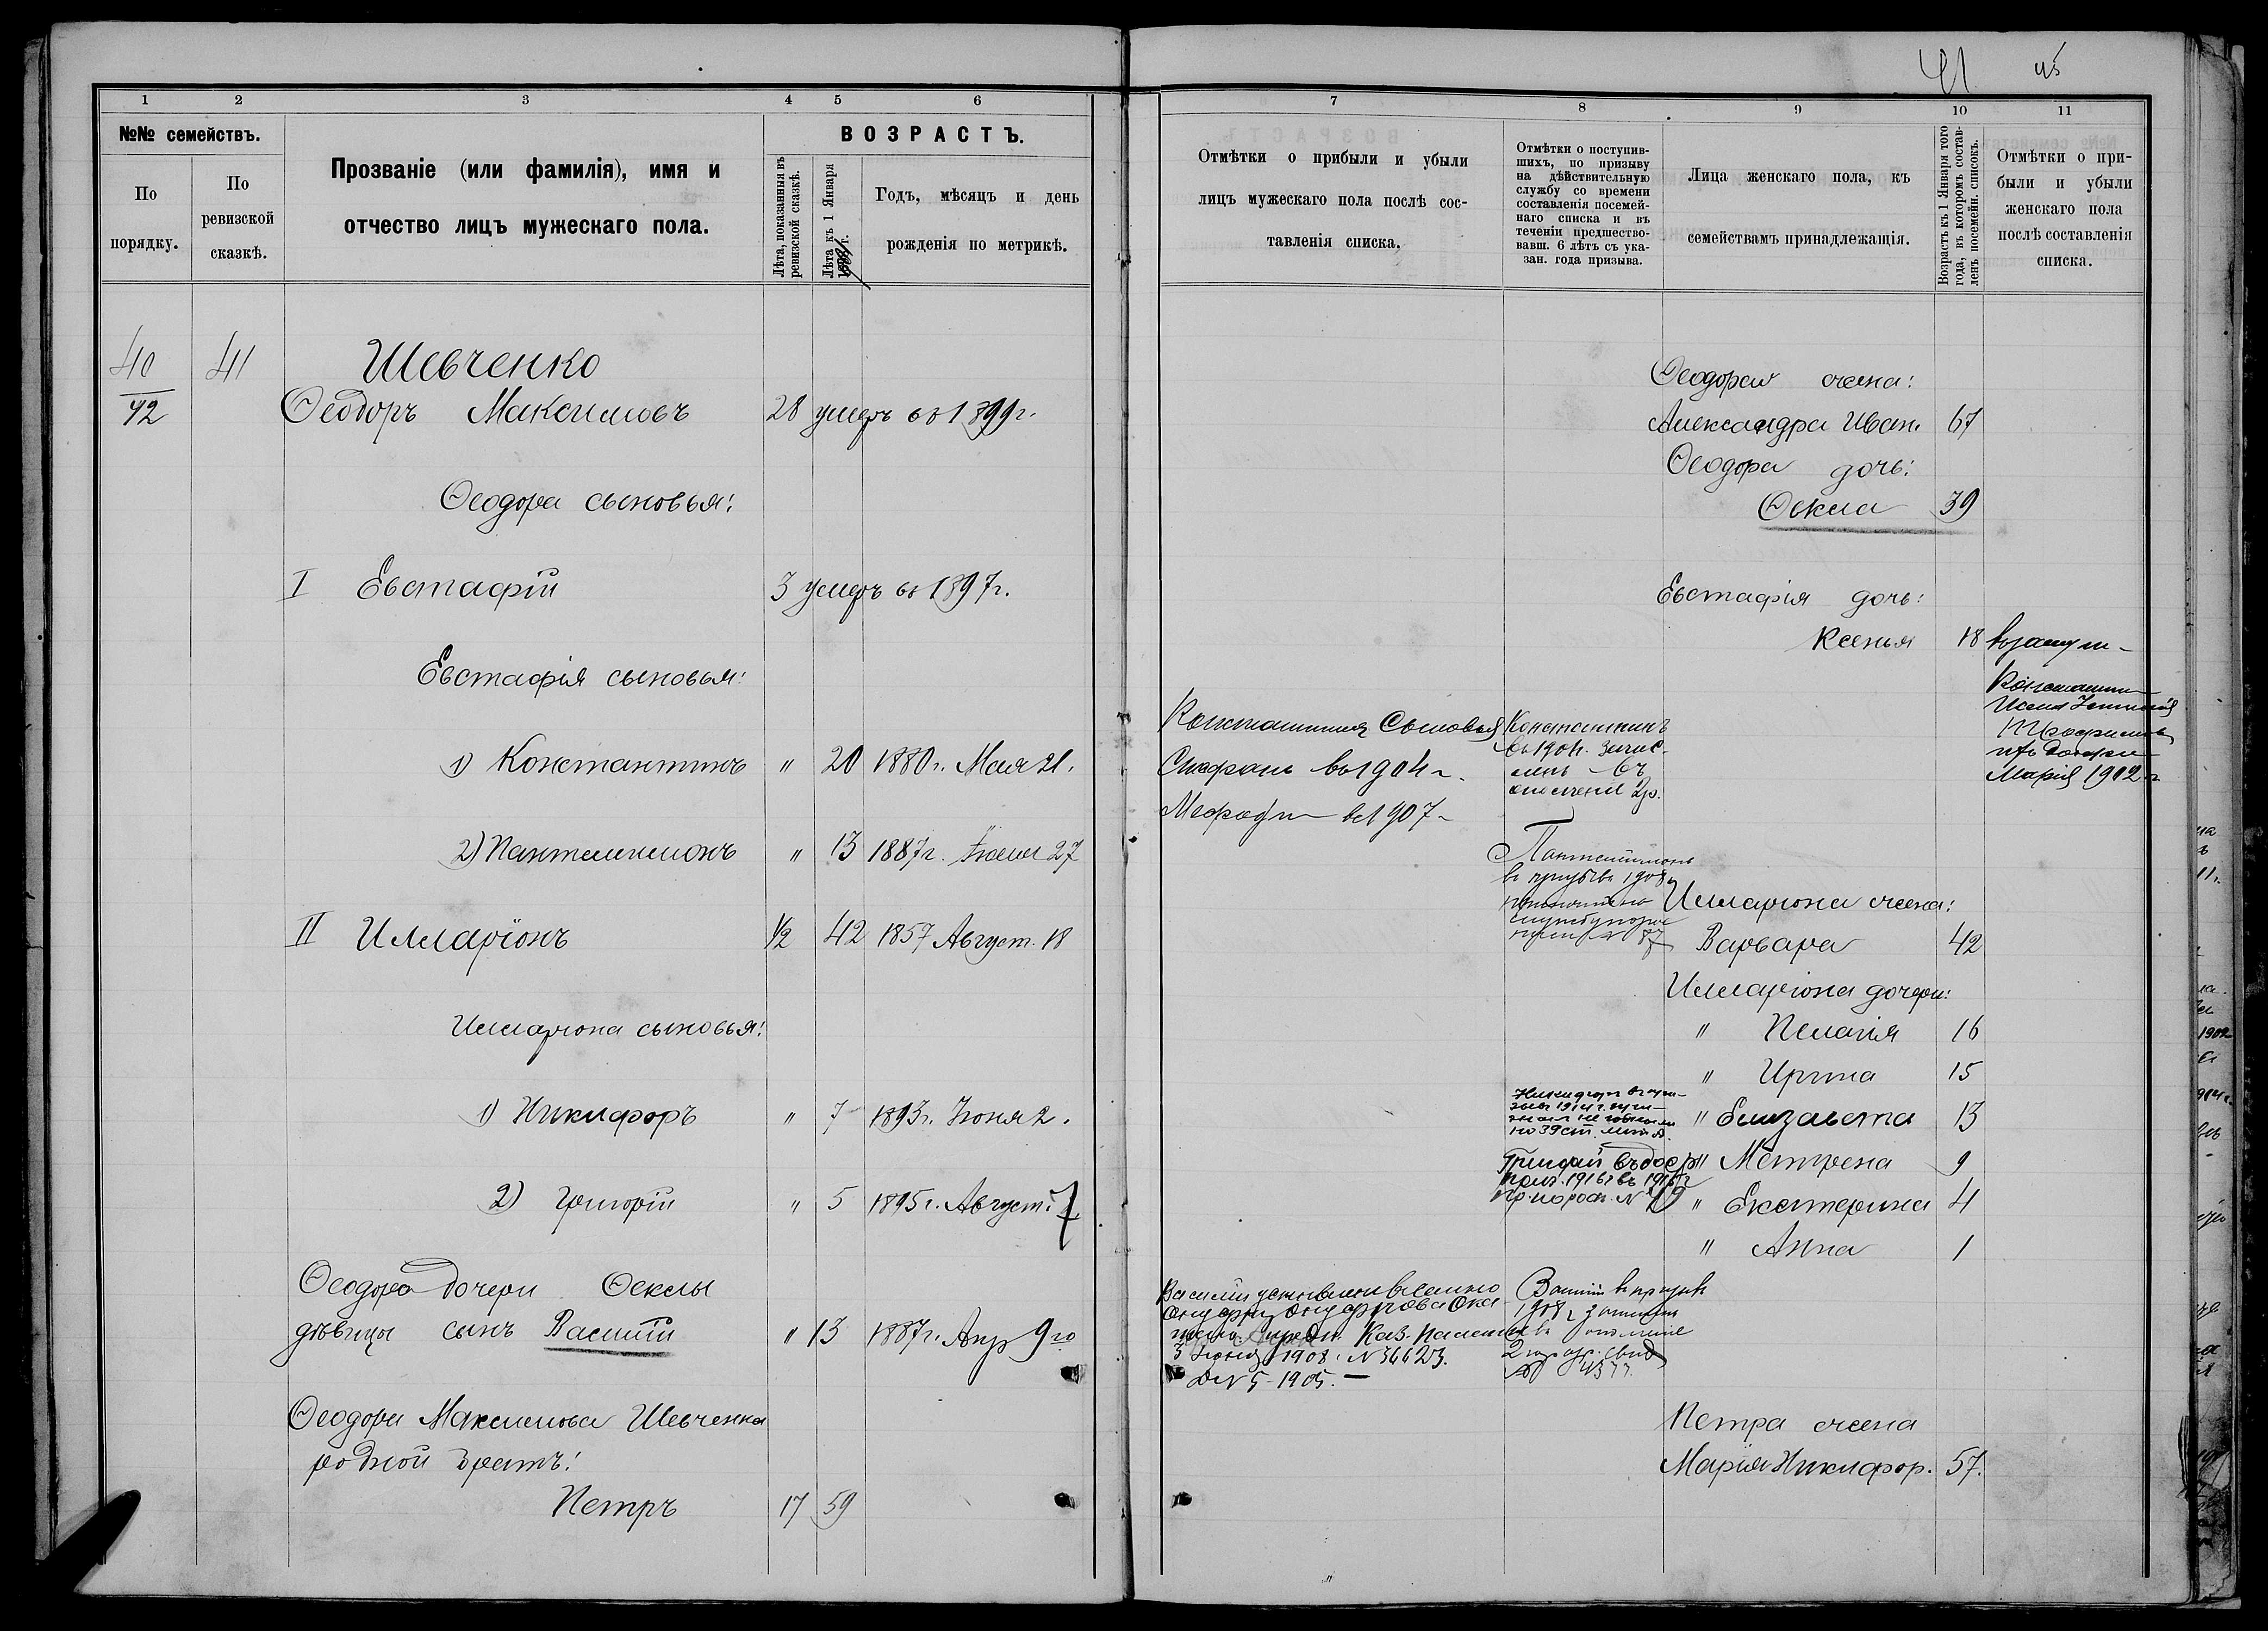 41 45
1 2 3 4 5 6
№№ семействъ.
По порядку.
По ревизской сказкѣ.
Прозваніе (или фамилія), имя и
отчество лицъ мужескаго пола.
ВОЗРАСТЪ.
Лѣта, показанныя въ
ревизской сказкѣ.
Лѣта къ 1 Января
Годъ, мѣсяцъ и день
рожденія по метрикѣ.
40 41 Шевченко
42 Ѳеодоръ Максимовъ 28 умеръ въ 1899 г.
Ѳеодора сыновья:
I Евстафій 3 умеръ въ 1897 г.
Евстафія сыновья:
1) Константинъ " 20 1880 г. Мая 21.
2) Пантелеимонъ " 13 1887 г. Іюля 27
II Илларіонъ 1/2 42 1857 Август. 18
Илларіона сыновья:
1) Никифоръ " 7 1893 г. Іюня 2.
2) Григорій " 5 1895 г. Август. 7
Ѳеодора дочери Ѳеклы
дѣвицы сынъ Василій " 13 1887 г. Апр 9го
Ѳеодора Максимова Шевченка
родной братъ:
Петръ 17 59
7 8 9 10 11
Отмѣтки о прибыли и убыли
лицъ мужескаго пола послѣ сос-
тавленія списка.
Отмѣтки о поступив-
шихъ, по призыву
на дѣйствительную
службу со времени
составленія посемей-
наго списка и въ
теченіи предшество-
вавш. 6 лѣтъ съ ука-
зан. года призыва.
Лица женскаго пола, къ
семействамъ принадлежащія.
Возрастъ къ 1 Января того
года, въ которомъ состав-
ленъ посемейн. списокъ.
Отмѣтки о при-
были и убыли
женскаго пола
послѣ составленія
списка.
Ѳеодора жена:
Александра Иван. 67
Ѳеодора дочь:
Ѳекла 39
Евстафія дочь:
Ксенія 18
Константина
Марія 1902 г
Константина Сыновья
Стефанъ въ 1904 г.
Меѳодій въ 1907
Константинъ
въ 1904 г. зачис-
ленъ въ
ополченіе 2 р.
Пантелеимонъ
въ призывъ 1908
87
Илларіона жена:
Варвара 42
Илларіона дочери:
" Пелагія 16
" Ирина 15
" Елизавета 13
" Метрена 9
" Екатерина 4
" Анна 1
Никифоръ
1914 г.
по 39 ст.
Григорій въ доср
приз. 1916 г въ 1915 г
Василій усыновленъ
Каз. Палаты
3 Іюня 1908 г. № 36623.
Д № 5-1905.
Василій въ призывъ
1908 г зачисленъ
въ ополченіе
2 разр. свид
№ 4377.
Петра жена
Марія Никифор. 57.